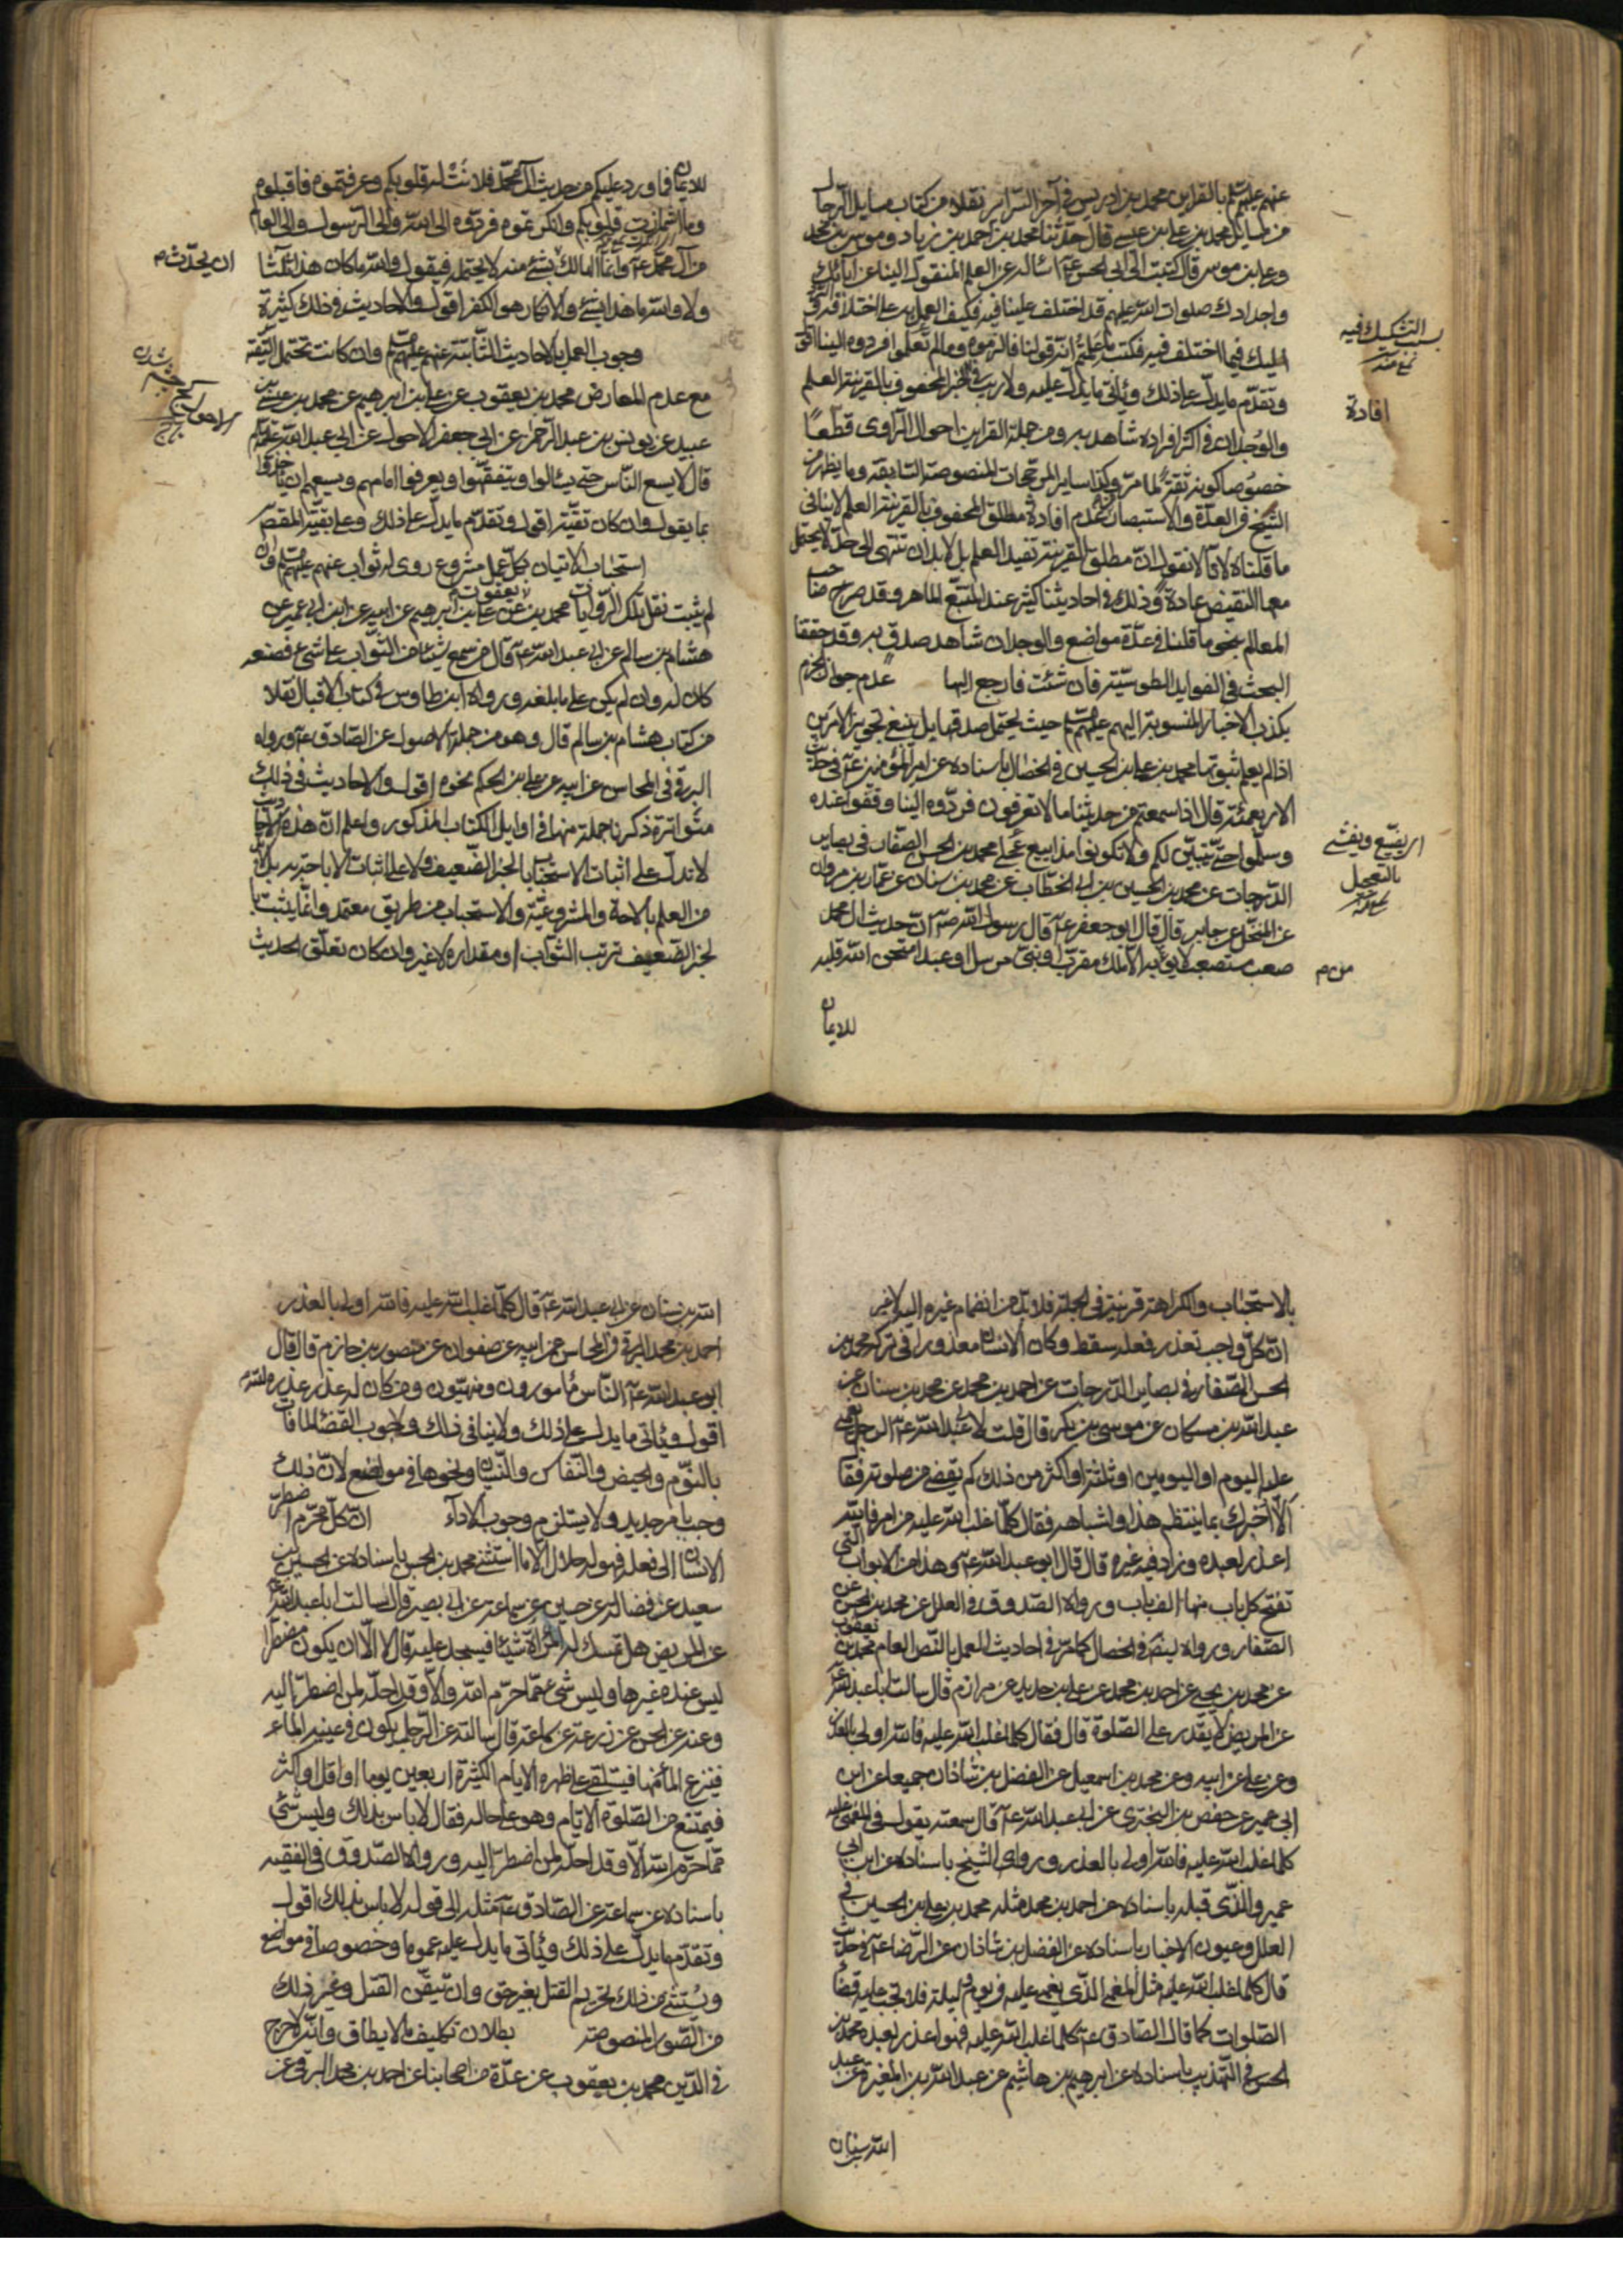 عنهم عليهم السلم بالقراين محمد بن ادريس في آخر السراير نقلا من كتاب مسايل الرجال
من مسايل محمد بن علي بن عيسى قال حدثنا محمد بن احمد بن زياد وموسى بن محمد
وعلي بن موسى قال كتبت الى ابي الحسن عه اسأله عن العلم المنقول الينا عن آبائك
واجدادك صلوات الله عليهم قد اختلف علينا فيه فكيف العمل به على اختلافه
اليك فيما اختلف فيه فكتب ما علمتم انه قولنا فالزموه وما لم تعلموا فردوه الينا اقول
وتقدم ما يدل على ذلك ويأتي ما يدل عليه ولا ريب في الخبر المحفوف بالقرينة العلم
والوجدان في اكثر افراده شاهد به ومن جملة القراين احوال الراوى قطعا
خصوصا كونه ثقة لما مر وكذا ساير المرجحات المنصوصة السابقة وما يظهر من
الشيخ في العدة والاستبصار من عدم افادة مطلق المحفوف بالقرينة العلم لا ينافي
ما قلناه لانا لا نقول ان مطلق القرينة تفيد العلم بل لابد ان تنتهى الى حد لا يحتمل
معها النقيض عادة وذلك في احاديثنا كثير عند المتتبع الماهر وقد صرح صاحب
المعالم بنحو ما قلنا في عدة مواضع والوجدان شاهد صدق به وقد حققنا
البحث في الفوايد الطوسية فان شئت فارجع اليها عدم جواز الجزم
بكذب الاخبار المنسوبة اليهم عليهم السلم حيث يحتمل صدقها بل ينبغي تجويز الامرين
اذا لم يعلم ثبوتها محمد بن علي بن الحسين في الخصال باسناده عن امير المؤمنين عه في حديث
الاربعمئة قال اذا سمعتم من حديثنا ما لا تعرفون فردوه الينا وقفوا عنده
وسلموا حتى يتبين لكم ولا تكونوا مذاييع عجلى محمد بن الحسن الصفار في بصاير
الدرجات عن محمد بن الحسين بن ابي الخطاب عن محمد بن سنان عن عمار بن مروان
عن المنخل عن جابر قال قال ابو جعفر عه قال رسول الله صه ان حديث ال محمد
صعب مستصعب لا يؤمن به الا ملك مقرب او نبى مرسل او عبد امتحن الله قلبه
للايمان
بسبب التشكيك فيه
افادة
اى يفشى
بالتعجيل
للايمان فما ورد عليكم من حديث آل محمد فلانت له قلوبكم وعرفتموه فاقبلوه
وما اشمأزت قلوبكم وانكرتموه فردوه الى الله والى الرسول والى العالم
من آل محمد عه وانما الهالك بشئ منه لا يحتمله فيقول والله ما كان هذا ثلثا
ولا والله ما هذا بشئ والانكار هو الكفر اقول والاحاديث في ذلك كثيرة
وجوب العمل بالاحاديث الثابتة عنهم عليهم السلم وان كانت تحتمل التقية
مع عدم المعارض محمد بن يعقوب عن علي بن ابرهيم عن محمد بن عيسى بن
عبيد عن يونس بن عبد الرحمن عن ابي جعفر الاحول عن ابي عبد الله عليه السلم
قال لا يسع الناس حتى يسألوا ويتفقهوا ويعرفوا امامهم ويسعهم ان يأخذوا
بما يقول وان كان تقية اقول وتقدم ما يدل على ذلك وعلى بقية المقصد
استحباب الاتيان بكل عمل مشروع روى له ثواب عنهم عليهم السلم وان
لم يثبت نقل تلك الروايات محمد بن يعقوب عن علي بن ابرهيم عن ابيه عن ابن ابي عمير عن
هشام بن سالم عن ابي عبد الله عه قال من سمع شيئا من الثواب على شئ فصنعه
كان له وان لم يكن على ما بلغه ورواه ابن طاوس في كتاب الاقبال نقلا
من كتاب هشام بن سالم قال وهو من جملة الاصول عن الصادق عه ورواه
البرقي في المحاسن عن ابيه عن علي بن الحكم نحوه اقول والاحاديث في ذلك
متواترة ذكرنا جملة منها في اوايل الكتاب المذكور واعلم ان هذه الاحاديث
لا تدل على اثبات الاستحباب بالخبر الضعيف ولا على اثبات الاباحة به بل لابد
من العلم بالاباحة والمشروعية والاستحباب من طريق معتمد وانما يثبت با
لخبر الضعيف ترتب الثواب او مقداره لا غير وان كان تعلق الحديث
ان يحدث م
بالاستحباب والكراهة قرينة في الجملة فلابد من انضمام غيره اليه لا غير
ان كل واجب تعذر فعله سقط وكان الانسان معذورا في تركه محمد بن
الحسن الصفار في بصاير الدرجات عن احمد بن محمد عن محمد بن سنان عن
عبد الله بن مسكان عن موسى بن بكر قال قلت لابي عبد الله عه الرجل يغمى
عليه اليوم او اليومين او ثلثة او اكثر من ذلك كم يقضى من صلوته فقا
الا اخبرك بما ينتظم هذا واشباهه فقال كلما غلب الله عليه من امر فالله
اعذر لعبده وزاد فيه غيره قال قال ابو عبد الله عه وهذا من الابواب التي
تفتح كل باب منها الف باب ورواه الصدوق في العلل عن محمد بن الحسن عن
الصفار ورواه ايضا في الخصال كما مر في احاديث العمل بالنص العام محمد بن يعقوب
عن محمد بن يحيى عن احمد بن محمد عن علي بن حديد عن مرازم قال سالت ابا عبد الله عه
عن المريض لا يقدر على الصلوة قال فقال كلما غلب الله عليه فالله اولى بالعذر
وعن علي عن ابيه وعن محمد بن اسمعيل عن الفضل بن شاذان جميعا عن ابن
ابي عمير عن حفص بن البخترى عن ابي عبد الله عه قال سمعته يقول في المغمى عليه
كلما غلب الله عليه فالله اولى بالعذر ورواه الشيخ باسناده عن ابن ابي
عمير والذى قبله باسناده عن احمد بن محمد مثله محمد بن علي بن الحسين في
العلل وعيون الاخبار باسناده عن الفضل بن شاذان عن الرضا عه في حديث
قال كلما غلب الله عليه مثل المغمى الذى يغمى عليه في يوم وليلة فلا يجب عليه قضاء
الصلوات كما قال الصادق عه كلما غلب الله عليه فهو اعذر لعبده محمد بن
الحسن في التهذيب باسناده عن ابرهيم بن هاشم عن عبد الله بن المغيرة عن عبد
الله بن سنان
الله بن سنان عن ابي عبد الله عه قال كلما غلب الله عليه فالله اولى بالعذر
احمد بن محمد البرقي في المحاسن عن ابيه عن صفوان عن منصور بن حازم قال قال
ابو عبد الله عه الناس مأمورون ومنهيون ومن كان له عذر عذره الله
اقول ويأتى ما يدل على ذلك ولا ينافى ذلك وجوب القضاء لما فات
بالنوم والحيض والنفاس والنسيان ونحوها في مواضع لان ذلك
وجب بامر جديد ولا يستلزم وجوب الاداء ان كل محرم اضطر
الانسان الى فعله فهو له حلال الا ما استثنى محمد بن الحسن باسناده عن الحسين بن
سعيد عن فضالة عن حسين عن سماعة عن ابي بصير قال سالت ابا عبد الله عه
عن المريض هل تمسك له المرأة شيئا فيسجد عليه قال لا الا ان يكون مضطرا
ليس عنده غيرها وليس شئ مما حرم الله الا وقد احله لمن اضطر اليه
وعنه عن الحسن عن زرعة عن سماعة قال سالته عن الرجل يكون في عينيه الماء
فينزع الماء منها فيستلقى على ظهره الايام الكثيرة اربعين يوما او اقل او اكثر
فيمتنع من الصلوة الايام وهو على حاله فقال لا باس بذلك وليس شئ
مما حرم الله الا وقد احله لمن اضطر اليه ورواه الصدوق في الفقيه
باسناده عن سماعة عن الصادق عه مثله الى قوله لا باس بذلك اقول
وتقدم ما يدل على ذلك ويأتى ما يدل عليه عموما وخصوصا في مواضع
ويستثنى من ذلك تحريم القتل بغير حق وان تيقن القتل وغير ذلك
من الصور المنصوصة بطلان تكليف ما لا يطاق وانه لا حرج
في الدين محمد بن يعقوب عن عدة من اصحابنا عن احمد بن محمد البرقي عن